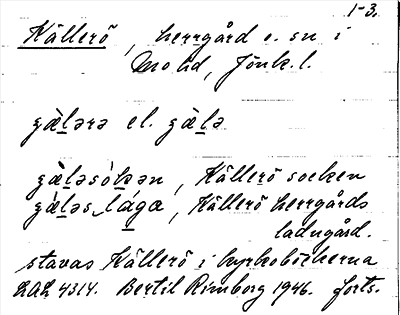 1-3.
Källerö, herrgård o. sn i
Mo hd, Jönk. l.
gä̀lərə el. gä̀lə
gä̀ləsókən, Källerö socken
gä̀ləs lága, Källerö herrgårds
ladugård.
stavas Källerö i kyrkoböckerna
ULMA 4314. Bertil Rimborg 1946. forts.